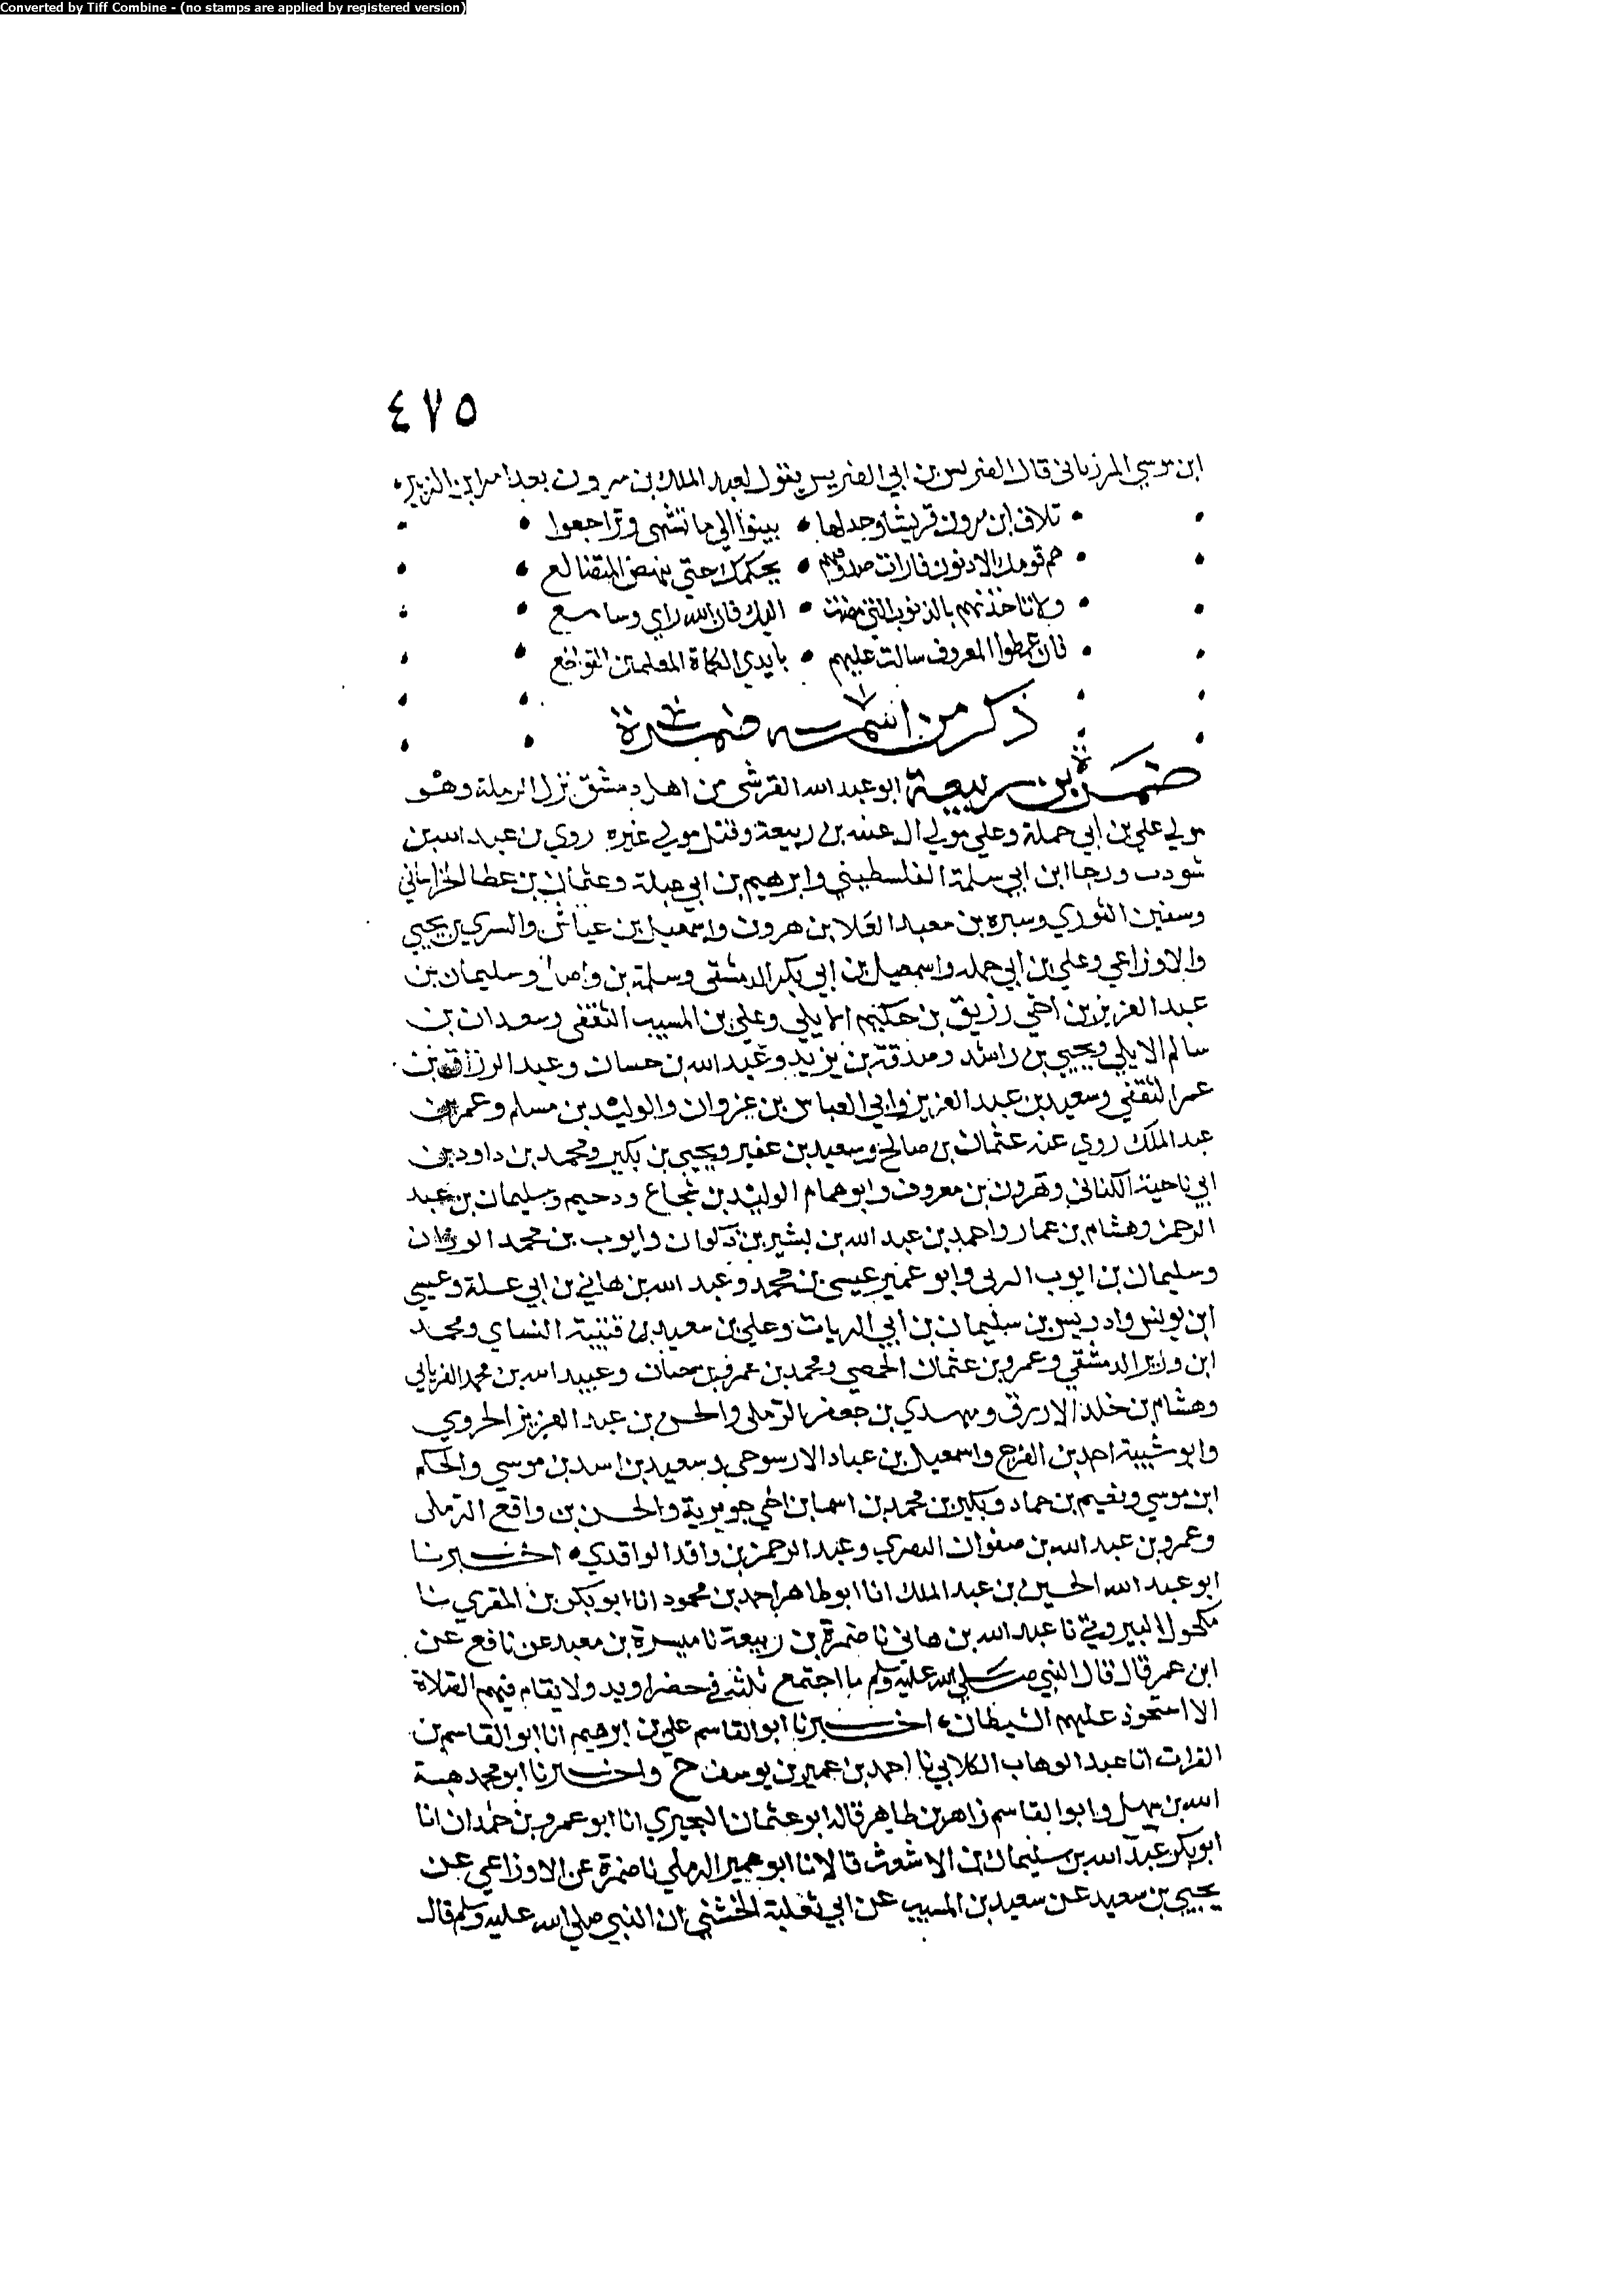 Converted by Tiff Combine - (no stamps are applied by registered version)
٤٧٥
ابن موسي المرزباني قال الضريس بن ابي الضريس يقول لعبد الملك بن مرون بعد امر ابن الزبير
تلاف ابن مرون قريشا وجد لها • يبينوا الي ما تشهى وتراجعوا
هم قومك الادنون فارات صدوعهم • بحكمك حتى ينهض المتقنا لع
ولا تاخذنهم بالذنوب التي مضت • اليك فان الله راي وسامع
فان غمطوا المعروف سالت عليهم • بايدي الكماة المعلمين القواطع
ذكر من اسمه ضمرة
ضمرة بن ربيعة ابو عبد الله القرشي من اهل دمشق نزل الرملة وهو
مولي علي بن ابي حملة وعلي مولي ال عتبه بن ربيعة وقيل مولي غيره روي عن عبد الله بن
شودب ورجا ابن ابي سلمة الفلسطيني وابرهيم بن ابي عبلة وعثمان بن عطا الخراساني
وسفين الثوري وسبره بن معبد العلا بن هرون واسمعيل بن عياش والسري بن يحيي
والاوزاعي وعلي بن ابي حمله واسمعيل بن ابي بكر الدمشقي وسلمة بن واصل وسليمان بن
عبد العزيز بن اخي رزيق بن حكيم الايلي وعلي بن المسيب الثقفي وسعدان بن
سالم الايلي ويحيي بن راشد ومذقة بن يزيد وعبد الله بن حسان وعبد الرزاق بن
عمر الثقفي وسعيد بن عبد العزيز وابي العباس بن غزوان والوليد بن مسلم وعمر بن
عبد الملك روي عنه عثمان بن صالح وسعيد بن عفير ويحيي بن بكير ومحمد بن داود بن
ابي ناحية الكناني وهرون بن معروف وابو همام الوليد بن شجاع ودحيم وسليمان بن عبد
الرحمن وهشام بن عمار واحمد بن عبد الله بن بشير بن ذكوان وايوب بن محمد الوزان
وسليمان بن ايوب الربي وابو عمير عيسى بن محمد وعبد الله بن هاني بن ابي عبلة وعيسي
ابن يونس وادريس بن سليمان بن ابي الرباب وعلي بن سعيد بن قتيبة النساي ومحمد
ابن وزير الدمشقي وعمرو بن عثمان الحمصي ومحمد بن عمرو بن حنان وعبيد الله بن محمد الفريابي
وهشام بن خلد الازرق ومهدي بن جعفر الرملي والحسن بن عبد العزيز الجروي
وابو شيبة احمد بن الفرج واسمعيل بن عباد الارسوفي وسعيد بن اسد بن موسي والحكم
ابن موسي ونعيم بن حماد وبكير بن محمد بن اسما ابن اخي جويرية والحسن بن واقع الرملي
وعمرو بن عبد الله بن صفوان النصري وعبد الرحمن بن واقد الواقدي • اخبرنا
ابو عبد الله الحسين بن عبد الملك انا ابو طاهر احمد بن محمود انا ابو بكر بن المقري نا
مكحول البيروتي نا عبد الله بن هاني نا ضمرة بن ربيعة نا ميسرة بن معبد عن نافع عن
ابن عمر قال قال النبي صلي الله عليه وسلم ما اجتمع ثلثه في حضر او بدو ولا يقام فيهم الصلاة
الا استحوذ عليهم الشيطان، اخبرنا ابو القاسم علي بن ابرهيم انا ابو القاسم بن
الفرات انا عبد الوهاب الكلابي نا احمد بن عمير بن يوسف ح واخبرنا ابو محمد هبة
الله بن سهل وابو القاسم زاهر بن طاهر قالا ابو عثمان البحيري انا ابو عمرو بن حمدان انا
ابو بكر عبد الله بن سليمان بن الاشعث قالا نا ابو عمير الرملي نا ضمرة عن الاوزاعي عن
يحيي بن سعيد عن سعيد بن المسيب عن ابي ثعلبة الخشني ان النبي صلي الله عليه وسلم قال